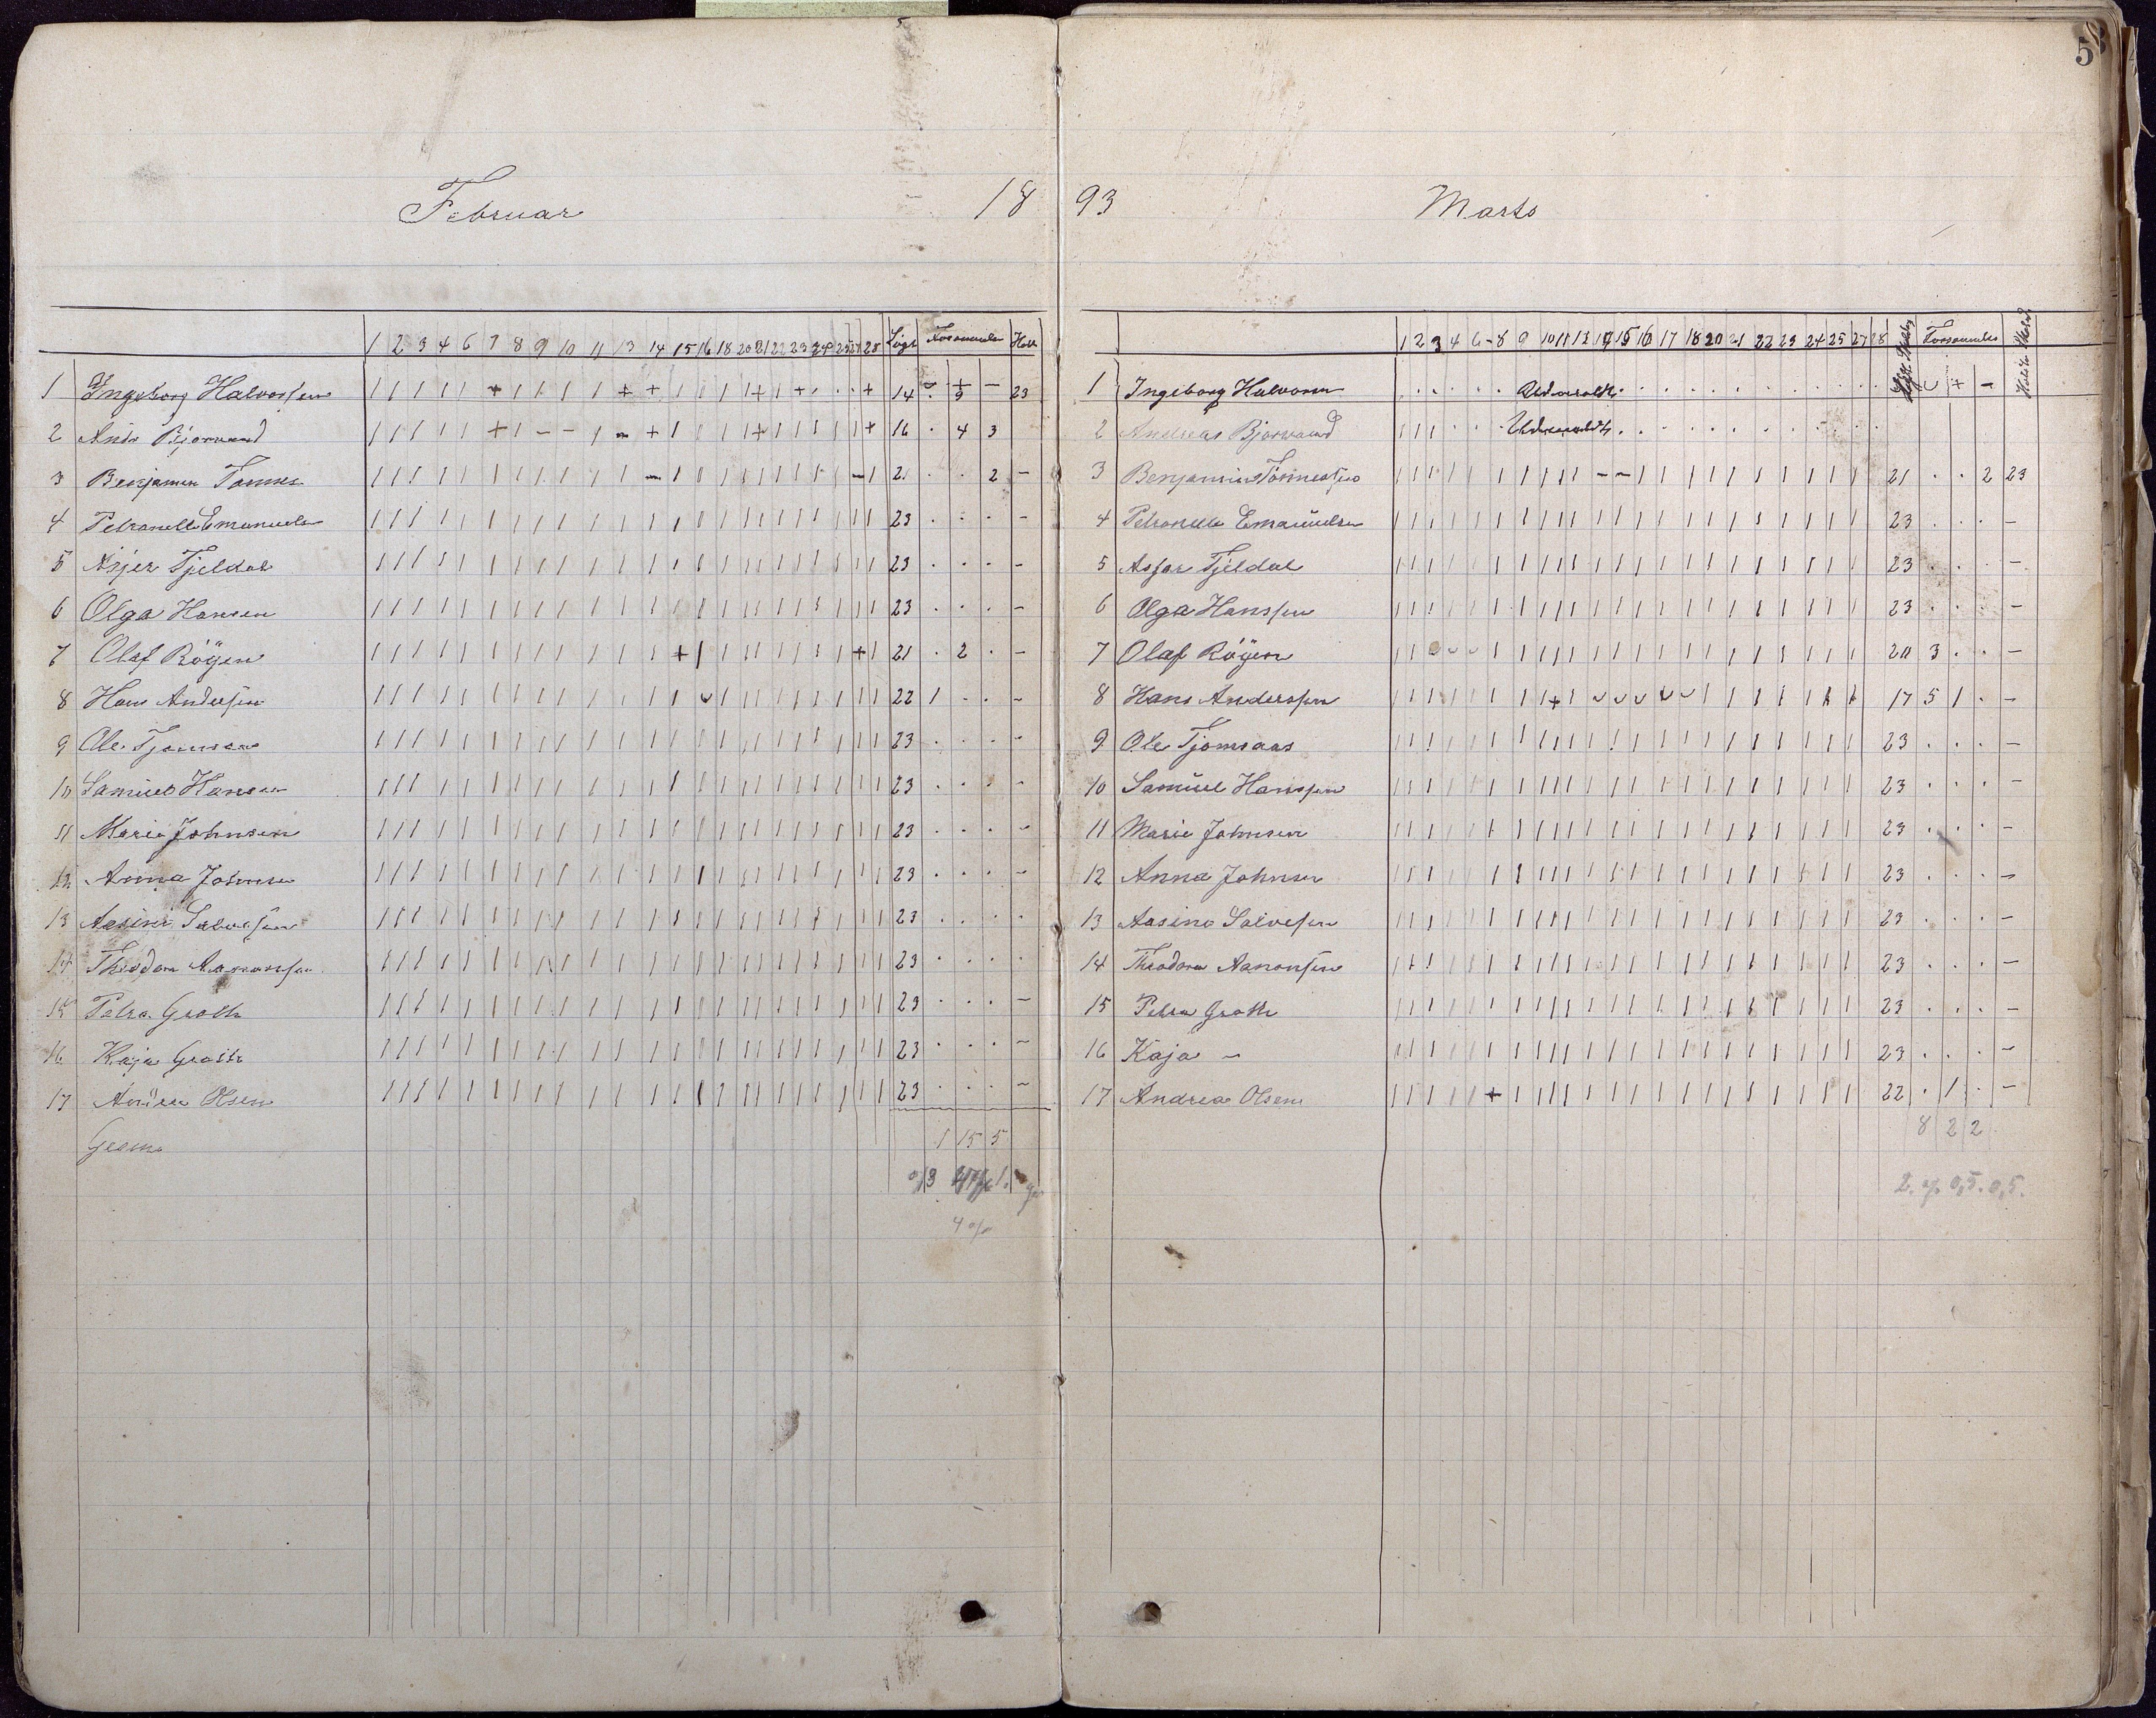 5
Februar 18
1 2 3 4 6 7 8 9 10 11 13 14 15 16 18 20 21 22 23 24 25 27 28 Søgt Forsømmelser Hold
1 Ingeborg Halvorsen | | | | | + | | | | | + + | | | | + | + . . . + 14 . 9 23
2 Andr Bjorvand | | | | | + | - - | - + | | | | + | | | | | + 16 . 4 3
3 Benjamin Tønnes | | | | | | | | | | | - | | | | | | | | | - | 21 . . 2 -
4 Petronelle Emanuels | | | | | | | | | | | | | | | | | | | | | | | 23 . . . -
5 Asjer Fjeldal | | | | | | | | | | | | | | | | | | | | | | | 23 . . . -
6 Olga Hansen | | | | | | | | | | | | | | | | | | | | | | | 23 . . . -
7 Olaf Röyen | | | | | | | | | | | | + | | | | | | | | + | 21 . 2 . -
8 Hans Andersen | | | | | | | | | | | | | ᴗ | | | | | | | | | 22 1 . . -
9 Ole Tjomsaas | | | | | | | | | | | | | | | | | | | | | | | 23 . . . -
10 Samuel Hansen | | | | | | | | | | | | | | | | | | | | | | | 23 . . . -
11 Marie Johnsen | | | | | | | | | | | | | | | | | | | | | | | 23 . . . -
12 Anna Johnsen | | | | | | | | | | | | | | | | | | | | | | | 23 . . . -
13 Aasine Salvesen | | | | | | | | | | | | | | | | | | | | | | | 23 . . . .
14 Theodora Aanonsen | | | | | | | | | | | | | | | | | | | | | | | 23 . . . .
15 Petra Groth | | | | | | | | | | | | | | | | | | | | | | | 23 . . . -
16 Kaja Groth | | | | | | | | | | | | | | | | | | | | | | | 23 . . . -
17 Andrea Olsen | | | | | | | | | | | | | | | | | | | | | | | 23 . . . -
1 15 5
4 %
93 Marts
1 2 3 4 6 - 8 9 10 11 13 14 15 16 17 18 20 21 22 23 24 25 27 28 Forsømmelser
1 Ingeborg Halvorsen . . . . . . . . . . . . . . . . ᴗ + -
2 Andreas Bjorvand | | | . . . . . . . . . . . .
3 Benjamin Tönnessen | | | | | | | | | | - - | | | | | | | | | | | 21 . . 2 23
4 Petronelle Emanuelsen | | | | | | | | | | | | | | | | | | | | | | | 23 . . . -
5 Asjer Fjeldal | | | | | | | | | | | | | | | | | | | | | | | 23 . . . -
6 Olga Hanssen | | | | | | | | | | | | | | | | | | | | | | | 23 . . . -
7 Olaf Röyen | | ᴗ ᴗ ᴗ | | | | | | | | | | | | | | | | | | 20 3 . . -
8 Hans Anderssen | | | | | | | | + | ᴗ ᴗ ᴗ ᴗ ᴗ | | | | | | | | 17 5 1 . -
9 Ole Tjomsaas | | | | | | | | | | | | | | | | | | | | | | | 23 . . . -
10 Samuel Hanssen | | | | | | | | | | | | | | | | | | | | | | | 23 . . . -
11 Marie Johnsen | | | | | | | | | | | | | | | | | | | | | | | 23 . . . -
12 Anna Johnsen | | | | | | | | | | | | | | | | | | | | | | | 23 . . . -
13 Aasine Salvesen | | | | | | | | | | | | | | | | | | | | | | | 23 . . . -
14 Theodora Aanonsen | | | | | | | | | | | | | | | | | | | | | | | 23 . . . -
15 Petra Groth | | | | | | | | | | | | | | | | | | | | | | | 23 . . . -
16 Kaja - | | | | | | | | | | | | | | | | | | | | | | | 23 . . . -
17 Andrea Olsen | | | | | + | | | | | | | | | | | | | | | | | 22 . 1 . -
8 2 2
2. % 0,5. 0,5.